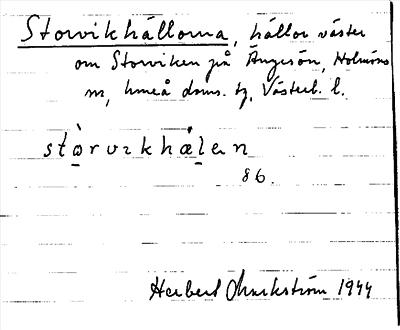 Storvikhällorna, hällor väster
om Storviken på Ängesön, Holmöns
sn, Umeå doms. tg, Västerb. l.
stòrvɪkhǽlan
86.
Herbert Markström 1944